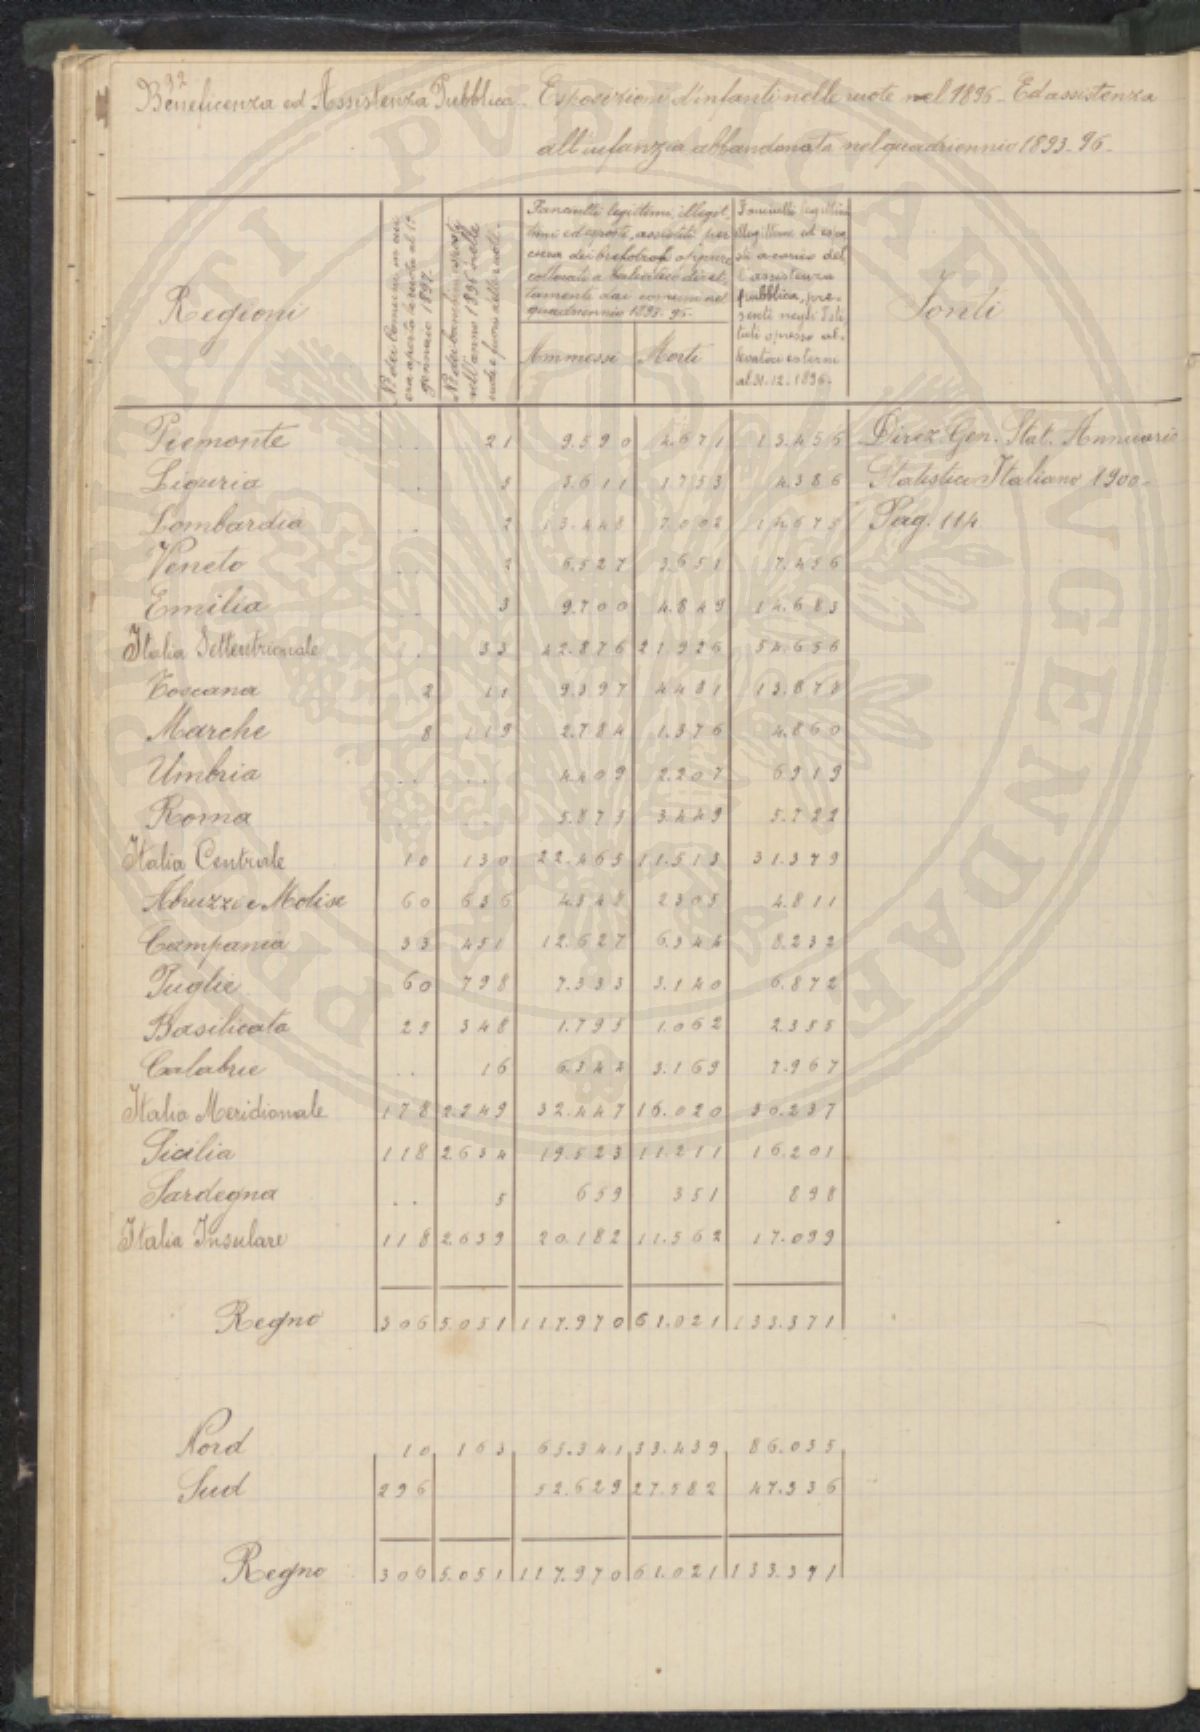 32
Beneficenza ed Assistenza Pubblica - Esposizioni d'infanti nelle ruote nel 1896 - Ed assistenza
all'infanzia abbandonata nel quadriennio 1893-96-
Regioni
N° dei Comuni in cui era aperta la ruota al 1° gennaio 1897.
N° dei bambini esposti nell'anno 1896 nelle ruote e fuori delle ruote
Fanciulli legittimi, illegit-
timi ed esposti, assistiti per
cura dei brefotrofi oppure
collocati a baliatico diret-
tamente dai comuni nel
quadriennio 1893-96-
Ammessi Morti
Fanciulli legittimi
illegittimi ed espo-
sti a carico del-
l'assistenza
pubblica, pre-
senti negli Isti
tuti o presso al-
levatori esterni
al 31.12.1896-
Fonti
Piemonte .. 21 9.590 4.671 13.456 Direz. Gen. Stat. Annuario
Liguria .. 5 3.611 1.753 4.386 Statistico Italiano 1900-
Lombardia .. 2 13.448 7.002 14.675 Pag. 114
Veneto .. 2 6.527 3.651 7.456
Emilia .. 3 9.700 4.849 14.683
Italia Settentrionale .. 33 42.876 21.926 54.656
Toscana 2 11 9.397 4481 13.878
Marche 8 119 2.784 1.376 4.860
Umbria .. .. 4409 2.207 6919
Roma .. .. 5.875 3.449 5.722
Italia Centrale 10 130 22.465 11.513 31.379
Abruzzi e Molise 60 636 4.348 2305 4.811
Campania 33 451 12.627 6.344 8.232
Puglie 60 798 7.333 3.140 6.872
Basilicata 25 348 1.795 1.062 2355
Calabrie .. 16 6.344 3.169 7.967
Italia Meridionale 178 2.249 32.447 16.020 30.237
Sicilia 118 2634 19.523 11.211 16.201
Sardegna .. 5 659 351 898
Italia Insulare 118 2.639 20.182 11.562 17.099
Regno 306 5.051 117.970 61.021 133.371
Nord 10 163 65.341 33.439 86.035
Sud 296 52.629 27.582 47.336
Regno 306 5.051 117.970 61.021 133.371